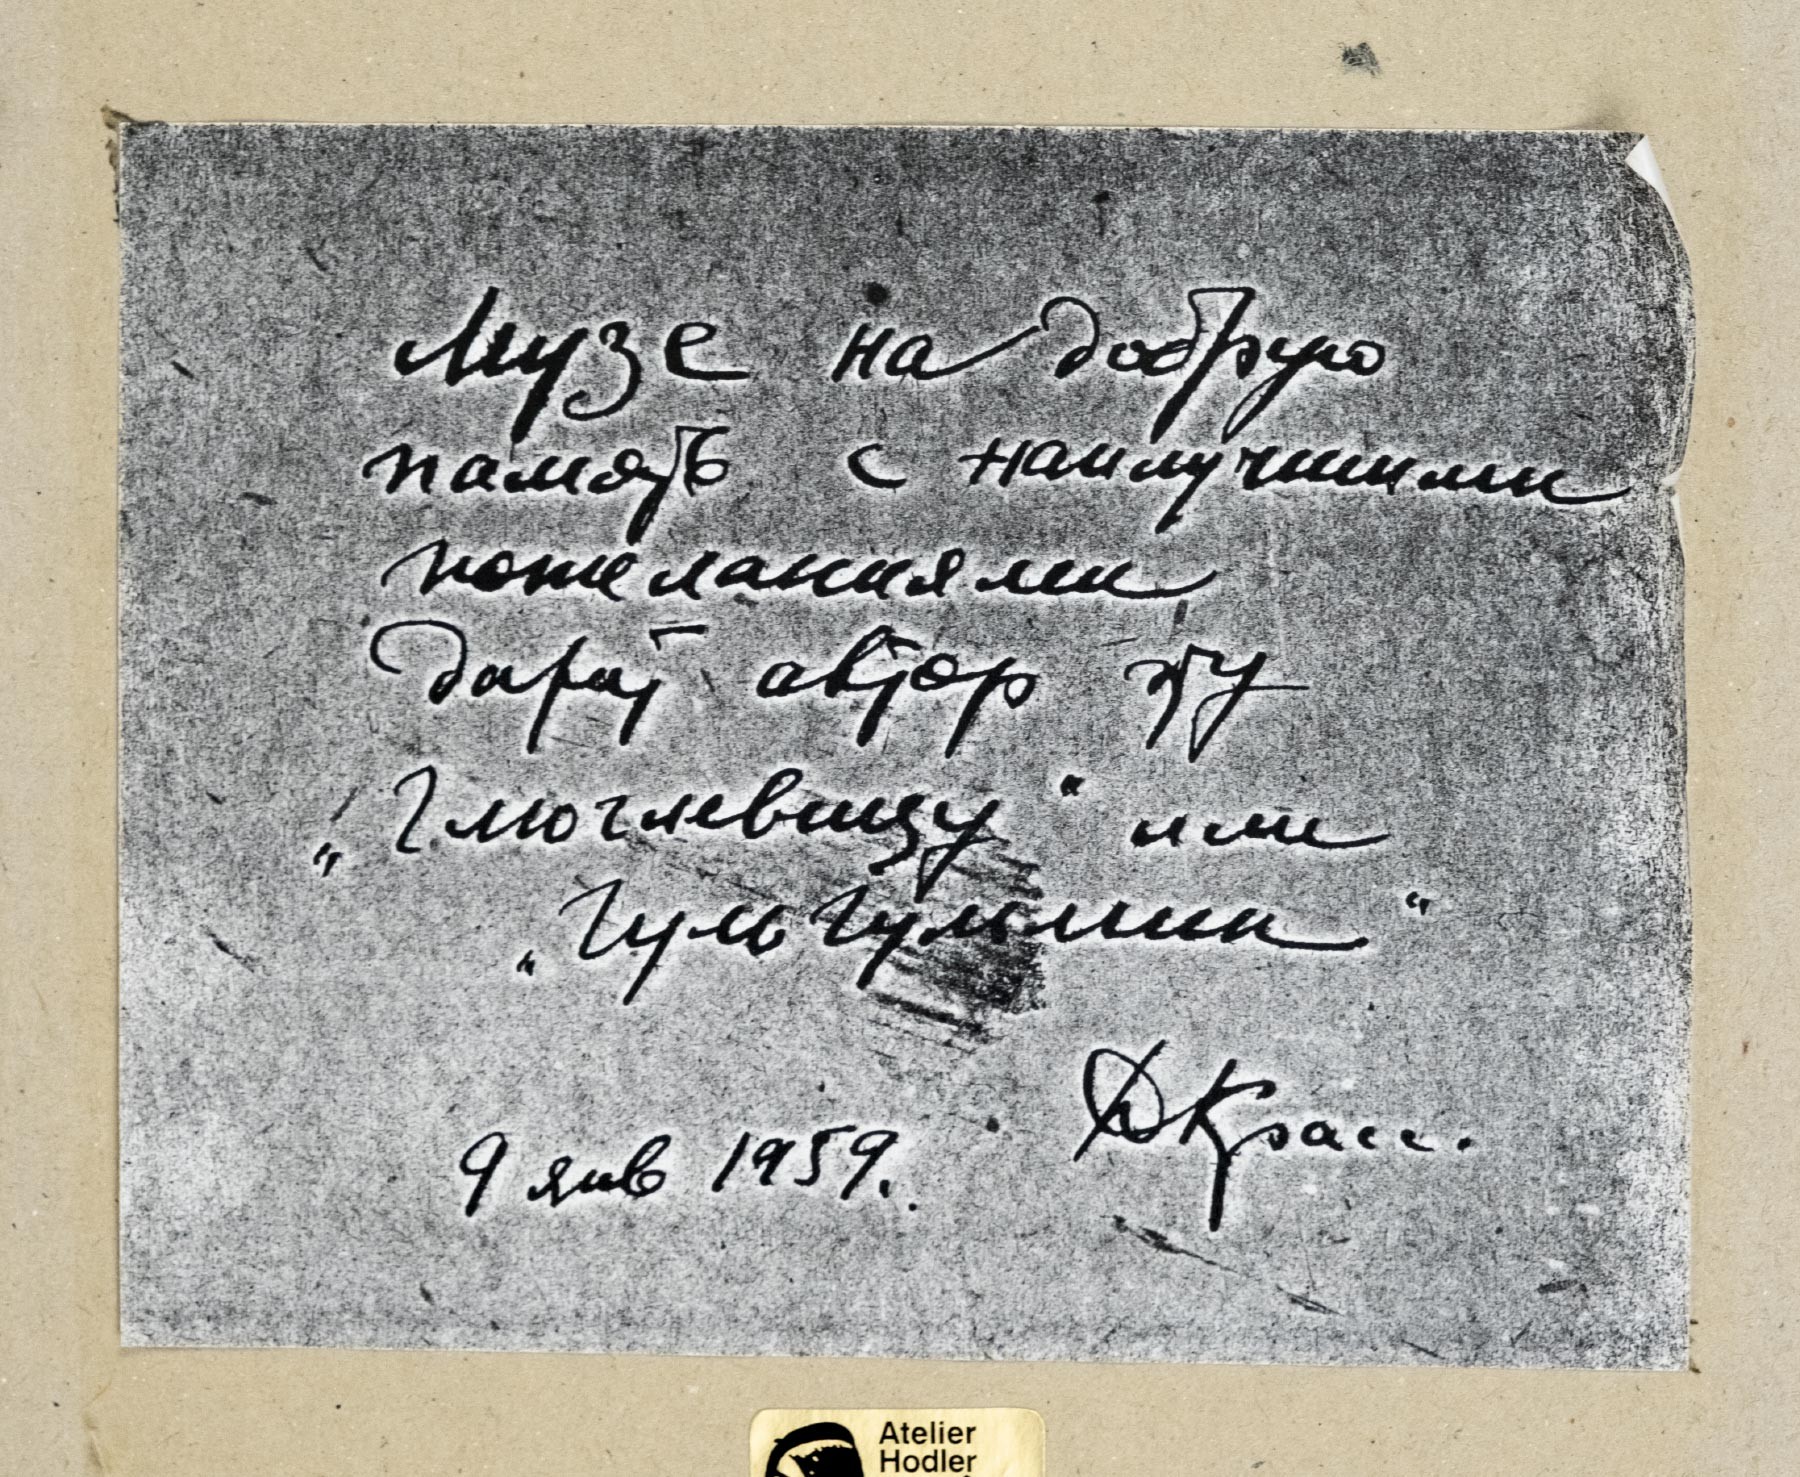 Музе на добрую
память с наилучшими
пожеланиями
дарит автор эту
„Глюглевицу“ или
„Гульгульмин“
ДКрасс.
9 янв 1959.
Atelier
Hodler